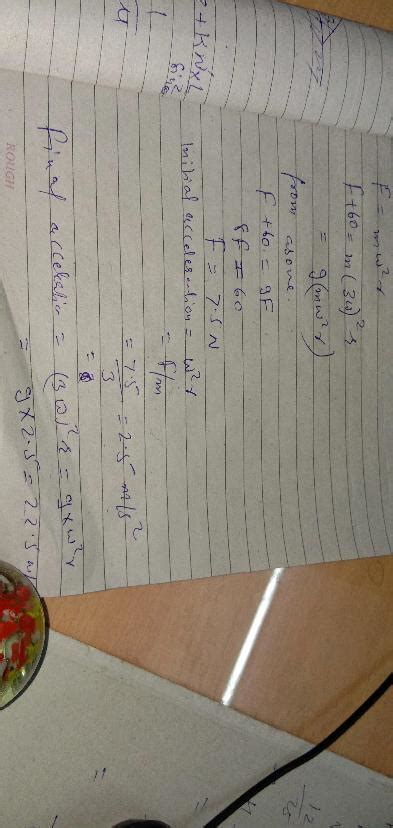 F = mω²r
F+60 = m(3ω)²r
= 9(mω²r)
from above.
F + 60 = 9F
8F = 60
F = 7.5 N
Initial acceleration = ω²r
= F/m
= 7.5/3 = 2.5 m/s²
=
Final acceleration = (3ω)²r = 9×ω²r
= 9×2.5 = 22.5 m
ROUGH
12